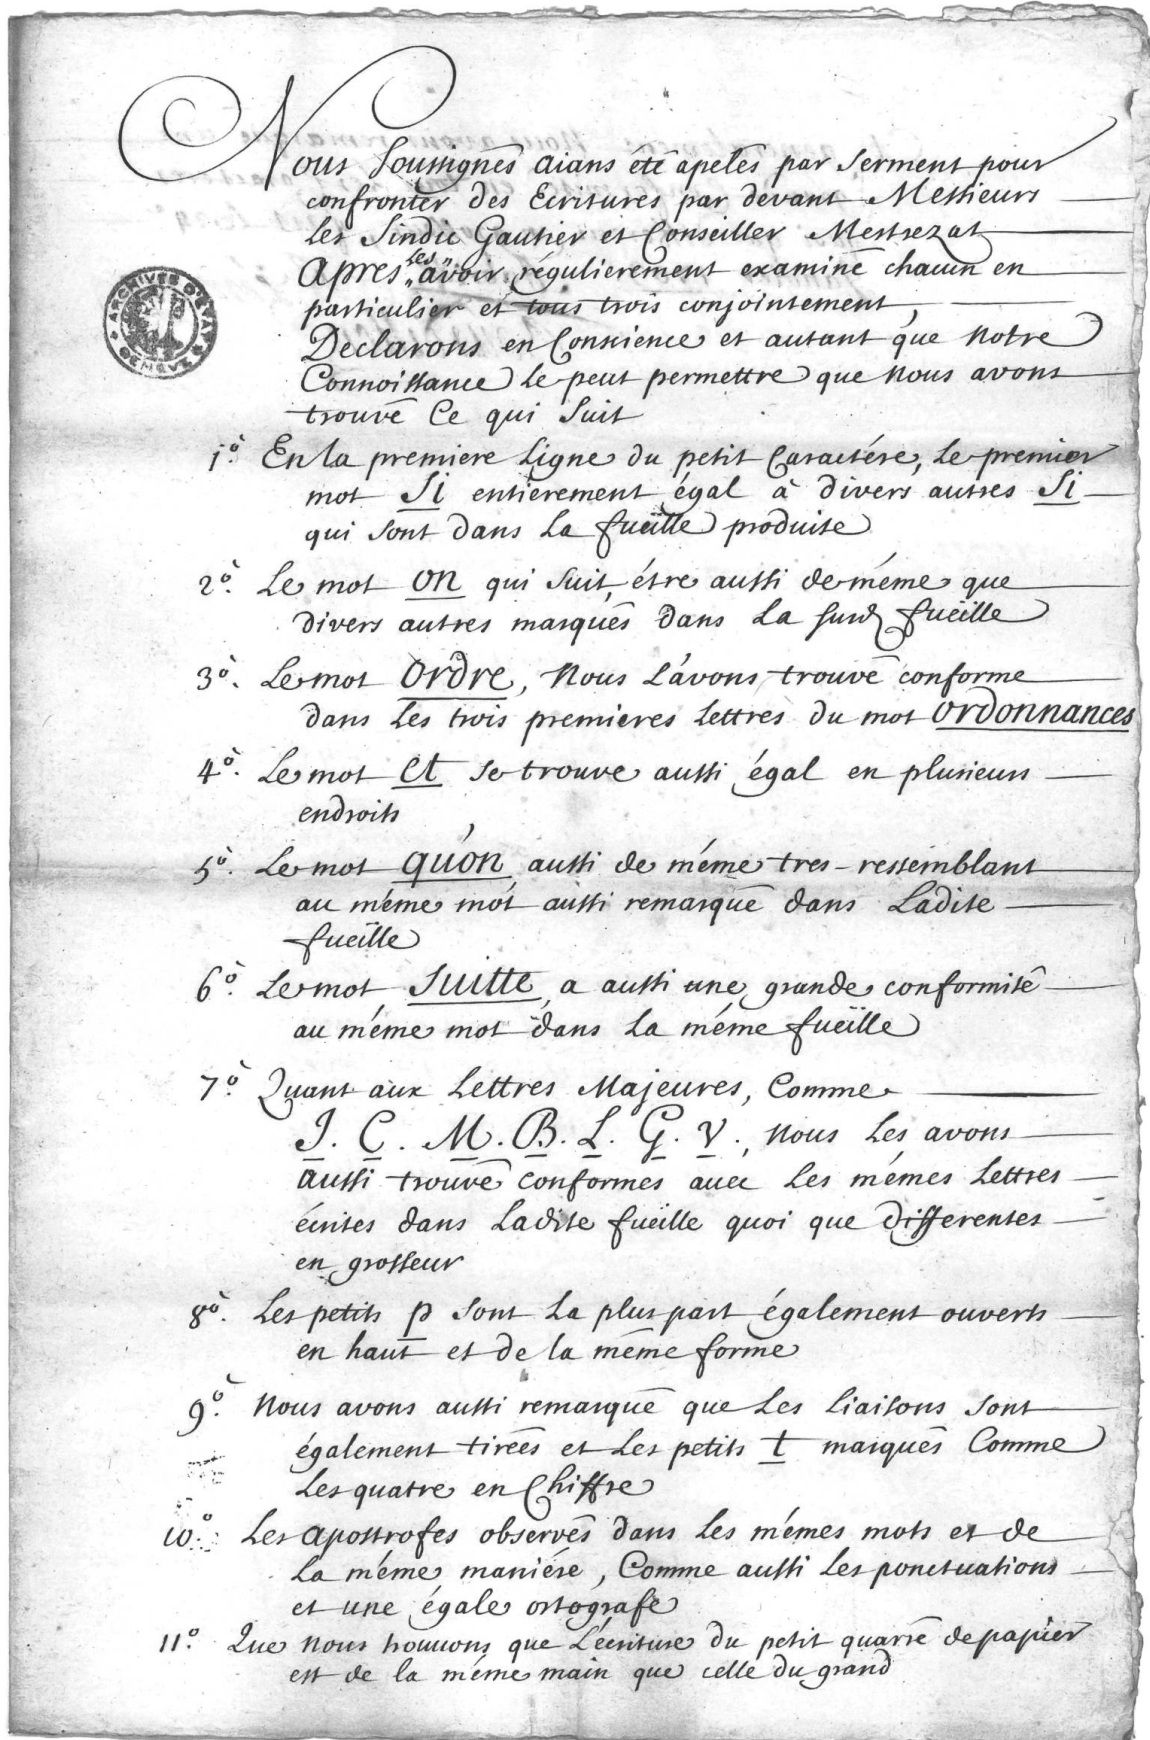 Nous Soussignés aians été apelés par serment pour
confronter des Ecritures par devant Messieurs
les Sindic Gautier et Conseiller Mestrezat
Apres les avoir régulierement examiné chacun en
particulier et tous trois conjointement,
Declarons en Conscience et autant que Notre
Connoissance le peut permettre que Nous avons
trouvé Ce qui Suit
1º. En la premiere Ligne du petit Caractére, Le premier
mot Si entierement égal à divers autres Si
qui sont dans La fueille produite
2º. Le mot on qui Suit, étre aussi de méme que
divers autres marqués dans La susd fueille
3º. Le mot Ordre, Nous L'avons trouvé conforme
dans Les trois premieres Lettres du mot Ordonnances
4º. Le mot et se trouve aussi égal en plusieurs
endroits
5º. Le mot qu'on aussi de méme tres-ressemblant
au méme mot aussi remarqué dans Ladite
fueille
6º. Le mot Suitte, a aussi une grande conformité
au méme mot dans La méme fueïlle
7º. Quant aux Lettres Majeures, Comme
J. C. M. B. L. G. V., Nous Les avons
aussi trouvé conformes avec Les mémes Lettres
écrites dans Ladite fueille quoi que differentes
en grosseur
8º. Les petits p sont La plus part également ouverts
en haut et de la méme forme
9º. Nous avons aussi remarqué que Les Liaisons Sont
également tirées et Les petits t marqués Comme
Les quatre en Chiffre
10º. Les apostrofes observés dans Les mémes mots et de
La méme maniére, Comme aussi Les ponctuations
et une égale ortografe
11º. Que Nous trouvons que L'écriture du petit quarré de papier
est de la méme main que celle du grand
ARCHIVES D'ETAT